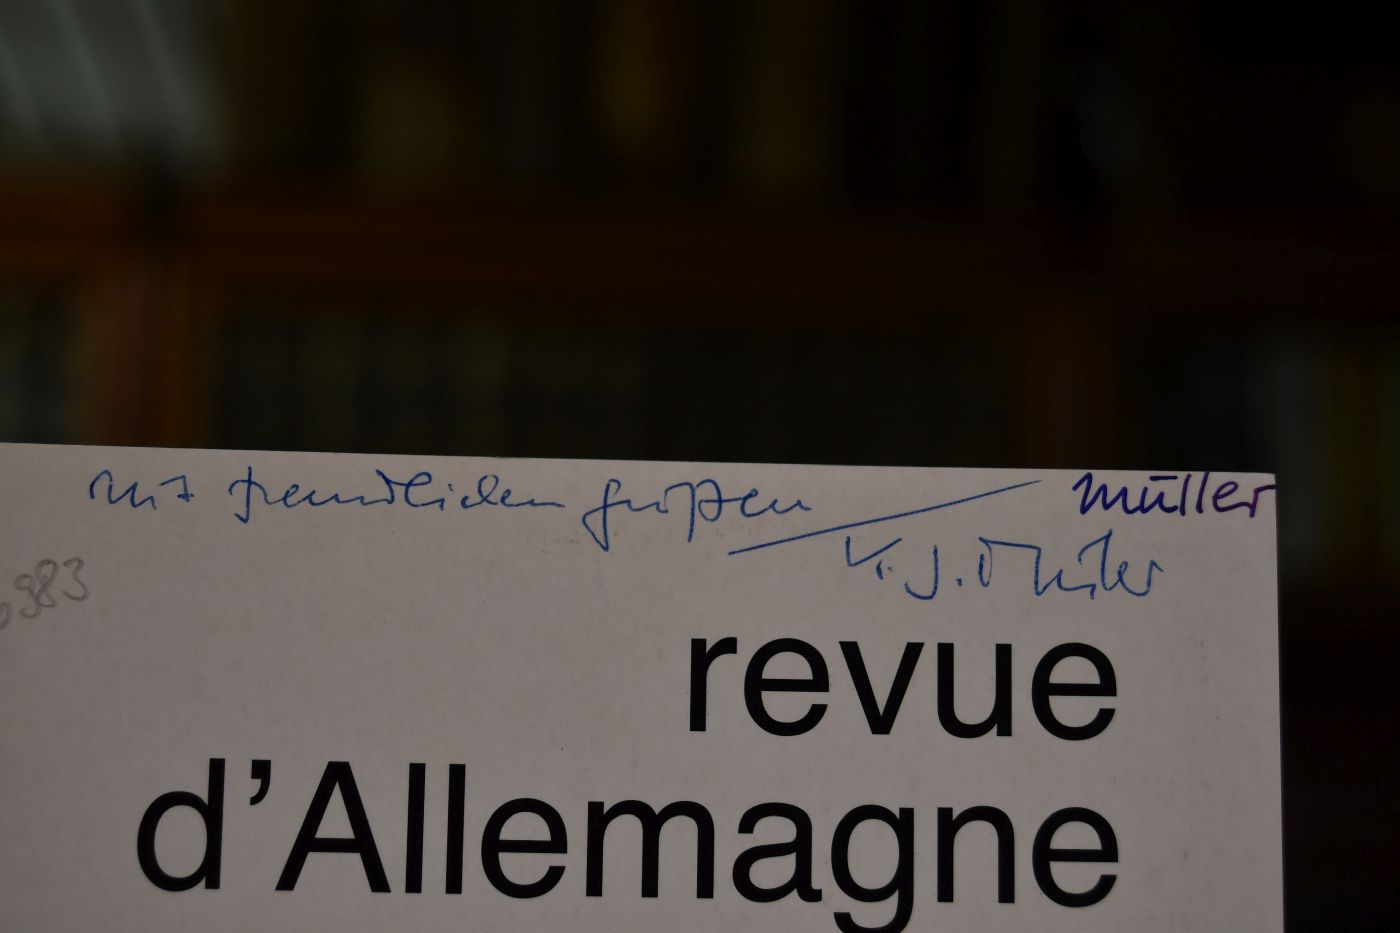 mit freundlichen Grüßen
Müller
K. J. Müller
983
revue
d'Allemagne